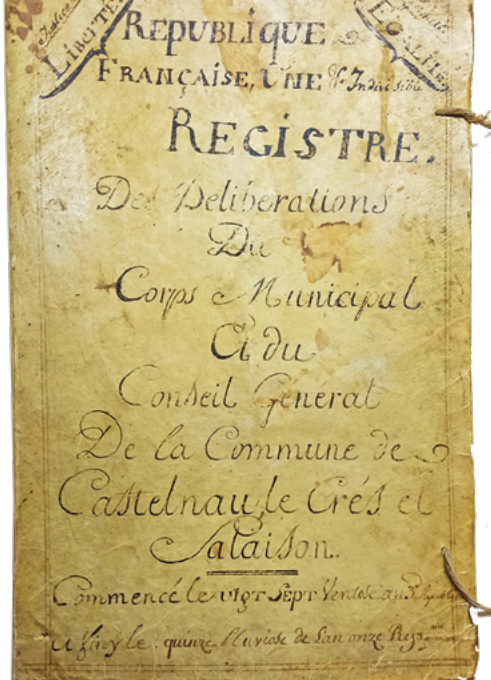 Justice
LIBERTÉ
EGALITÉ
REPUBLIQUE
FRANÇAISE, UNE & Indivisible
REGISTRE.
Des Deliberations
Du
Corps Municipal
Et du
Conseil General
De la Commune de
Castelnau, le Crés et
Salaison.
Commencé le vigt sept Ventose an
et finy le quinze Pluviose de Lan onze Rep.